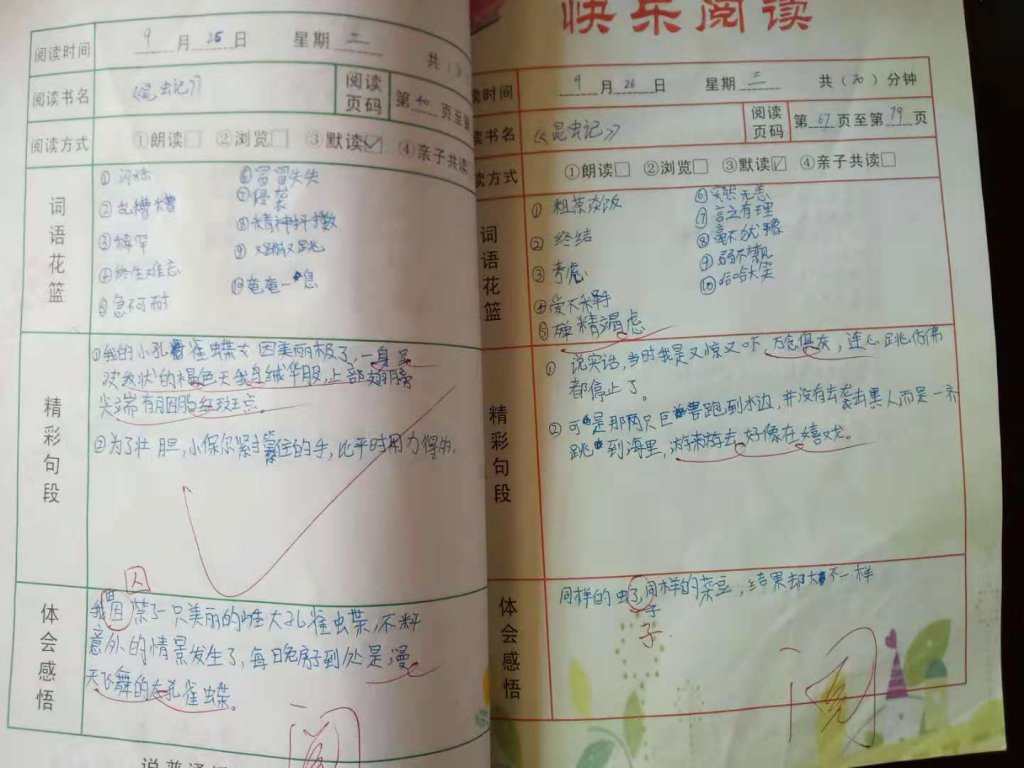 阅读时间 9月25日 星期二 共(
阅读书名 《昆虫记》 阅读页码 第40页至第
阅读方式 ①朗读□ ②浏览□ ③默读☑ ④亲子共读
词语花篮
① 闪烁
② 乱糟糟
③ 稀罕
④ 终生难忘
⑤ 急不可耐
⑥ 冒冒失失
⑧ 精神抖擞
⑨ 又蹦又跳
⑩ 奄奄一息
精彩句段
①我的小孔雀蝶 因美丽极了,一身
次我状的褐色天鹅绒华服,上部翅膀
尖端有胭脂红斑点。
②为了壮胆,小保尔紧紧
的手,比平时用力得多。
体会感悟
囚
我因禁了一只美丽的雌大孔雀虫蝶,不料
意外的情景发生了,每日晚房子到处是漫
天飞舞的大孔雀虫蝶。
阅
说普通
快乐阅读
读时间 9月26日 星期三 共(30)分钟
读书名 《昆虫记》 阅读页码 第67页至第79页
读方式 ①朗读□ ②浏览□ ③默读☑ ④亲子共读□
词语花篮
① 粗茶淡饭
② 终结
③ 考虑
⑤ 殚精竭虑
⑥ 安然无恙
⑦ 言之有理
⑧ 毫不犹豫
⑩ 哈哈大笑
精彩句段
① 说实话,当时我是又惊又吓,万念俱灰,连心跳仿佛
都停止了。
② 可是那两只巨兽跑到水边,并没有去袭击黑人而是一齐
跳到海里,游来游去好像在嬉戏。
体会感悟
同样的虫了,同样的菜豆,结果却大不一样
子
子
阅